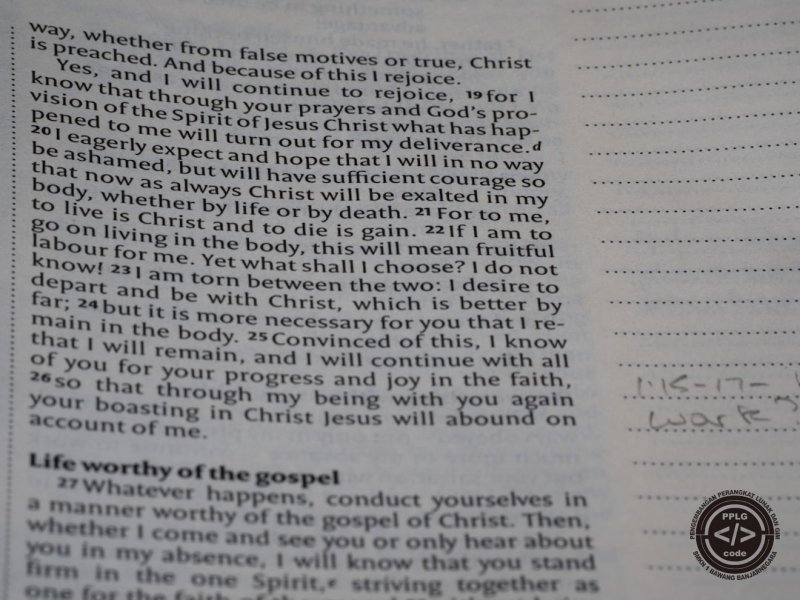 way, whether from false motives or true, Christ
is preached. And because of this I rejoice.
Yes, and I will continue to rejoice, 19 for I
know that through your prayers and God's pro-
vision of the Spirit of Jesus Christ what has hap-
pened to me will turn out for my deliverance.d
20 I eagerly expect and hope that I will in no way
be ashamed, but will have sufficient courage so
that now as always Christ will be exalted in my
body, whether by life or by death. 21 For to me,
to live is Christ and to die is gain. 22 If I am to
go on living in the body, this will mean fruitful
labour for me. Yet what shall I choose? I do not
know! 23 I am torn between the two: I desire to
depart and be with Christ, which is better by
far; 24 but it is more necessary for you that I re-
main in the body. 25 Convinced of this, I know
that I will remain, and I will continue with all
of you for your progress and joy in the faith,
26 so that through my being with you again
your boasting in Christ Jesus will abound on
account of me.
Life worthy of the gospel
27 Whatever happens, conduct yourselves in
a manner worthy of the gospel of Christ. Then,
whether I come and see you or only hear about
you in my absence, I will know that you stand
firm in the one Spirit,e striving together as
one for the faith of the
1:15-17-
work
PENGEMBANGAN PERANGKAT LUNAK DAN GIM
PPLG
</>
code
SMKN 1 BAWANG BANJARNEGARA